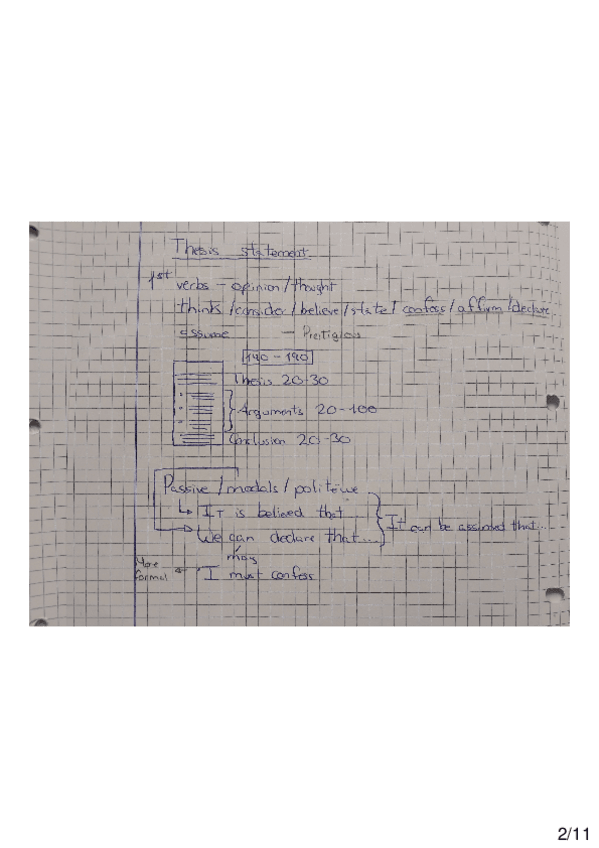 Thesis statement
1st verbs - opinion / thought
think / consider / believe / state / confess / affirm / declare
assume -
140 - 190
Thesis 20-30
Arguments 20-100
Conclusion 20-30
Passive / modals / politewe
It is believed that
We can declare that...
It can be assumed that...
may
More formal
I must confess
2/11